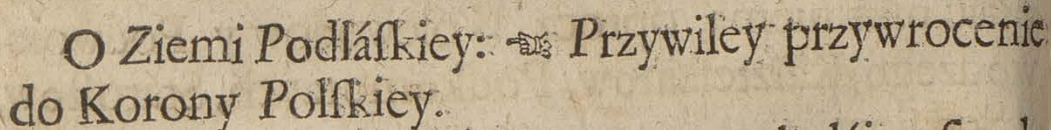 O Ziemi Podláſkiey: ☜ Przywiley przywrocenie
do Korony Polſkiey.